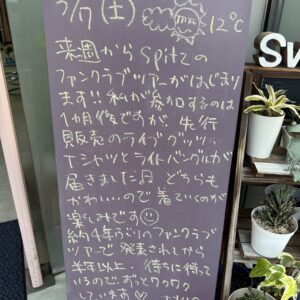 3/7(土) 12°C
来週からspitzの
ファンクラブツアーがはじまり
ます!! 私が参加するのは
1ヵ月後ですが、先行
販売のライブグッツ、
Tシャツとライトバングルが
届きました♫ どちらも
かわいいので着ていくのが
楽しみです☺
約4年ぶりのファンクラブ
ツアーで 発表されてから
半年以上 待ちに待って
いるので、ずっとワクワク
しています♡
Sw